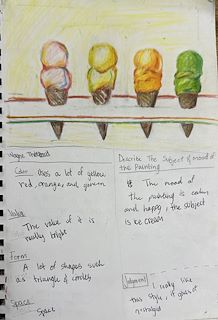 Wayne Thiebaud
Color: Uses a lot of yellow
red, orange, and green
Value
The value of it is
really bright
Form:
A lot of shapes such
as triangle & circles
Space:
Space
Describe The Subject & mood of
the Painting
The mood of
the painting is calm
and happy, the subject
is ice cream
Judgement
I really like
this style, it gives off
nostalgia